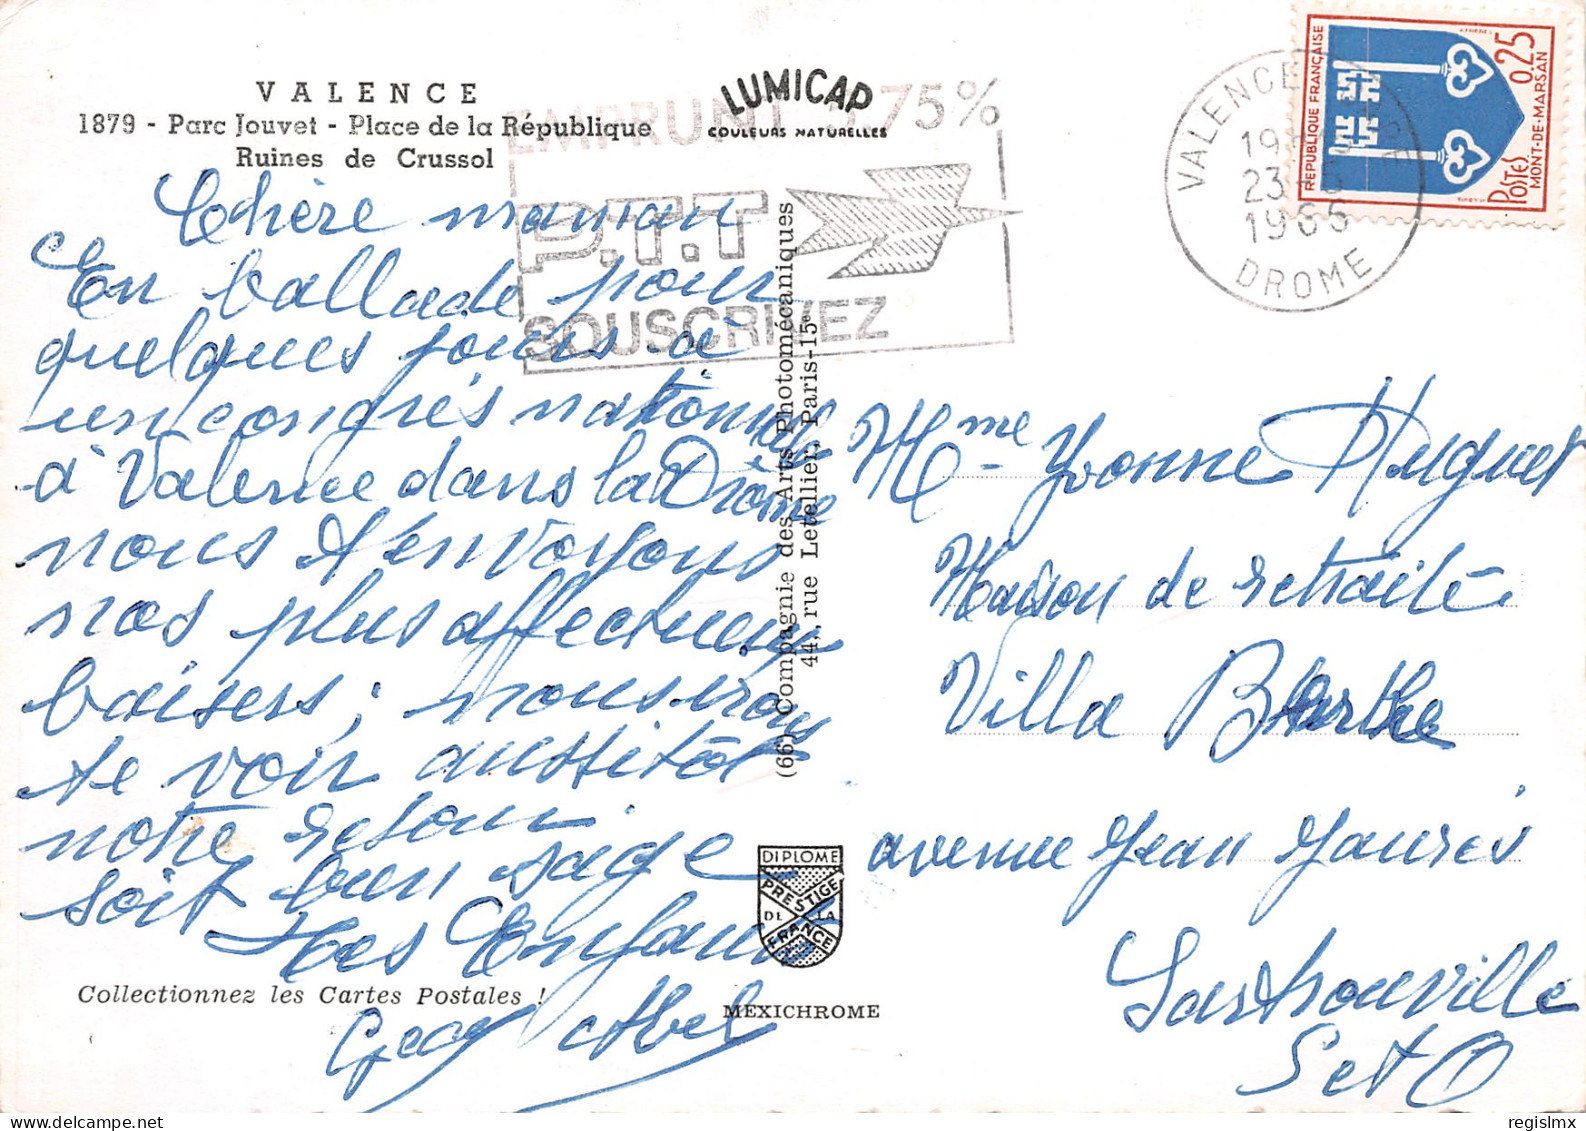 VALENCE
1879 - Parc Jouvet - Place de la République
Ruines de Crussol
LUMICAP
COULEURS NATURELLES
EMPRUNT 75%
P.T.T
SOUSCRIVEZ
VALENCE
19H
23
1966
DROME
REPUBLIQUE FRANÇAISE
0.25
POSTES
MONT-DE-MARSAN
Chère maman
En ballade pour
quelques jours à
un congrès national
à Valence dans la Drôme
nous t'envoyons
nos plus affectueux
baisers; nous irons
te voir aussitôt
notre retour
soit bien sage
Tes Enfants
Abel
(66) Compagnie des Arts Photomécaniques
44, rue Letellier, Paris-15e
Mme Yvonne Huguet
Maison de retraite
Villa Berthe
avenue Jean Jaurès
Sartrouville
S et O
DIPLOME
PRESTIGE
DE LA
FRANCE
Collectionnez les Cartes Postales !
MEXICHROME
regislmx